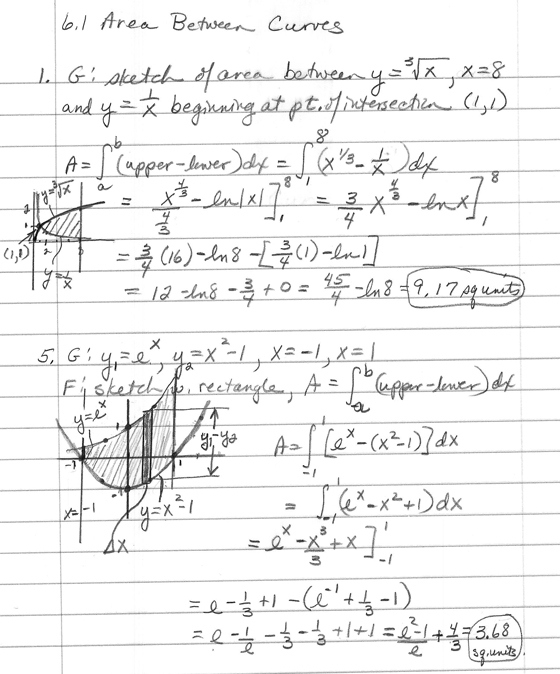 6.1 Area Between Curves
1. G: sketch of area between y = ∛x, x = 8
and y = 1/x beginning at pt. of intersection (1,1)
A = ∫_a^b (upper - lower) dx = ∫_1^8 (x^(1/3) - 1/x) dx
y = ∛x
= x^(4/3)/(4/3) - ln|x| ]_1^8 = 3/4 x^(4/3) - ln x ]_1^8
2
(1,1)
2
y = 1/x
= 3/4 (16) - ln 8 - [3/4 (1) - ln 1]
= 12 - ln 8 - 3/4 + 0 = 45/4 - ln 8 = 9.17 sq units
5. G: y₁ = e^x, y₂ = x² - 1, x = -1, x = 1
F: sketch w. rectangle, A = ∫_a^b (upper - lower) dx
y = e^x
y₁ - y₂
A = ∫_{-1}^1 [e^x - (x² - 1)] dx
-1
1
1
-1
x = -1
y = x² - 1
= ∫_{-1}^1 (e^x - x² + 1) dx
Δx
= e^x - x³/3 + x ]_{-1}^1
= e - 1/3 + 1 - (e^(-1) + 1/3 - 1)
= e - 1/e - 1/3 - 1/3 + 1 + 1 = (e² - 1)/e + 4/3 = 3.68
sq. units.